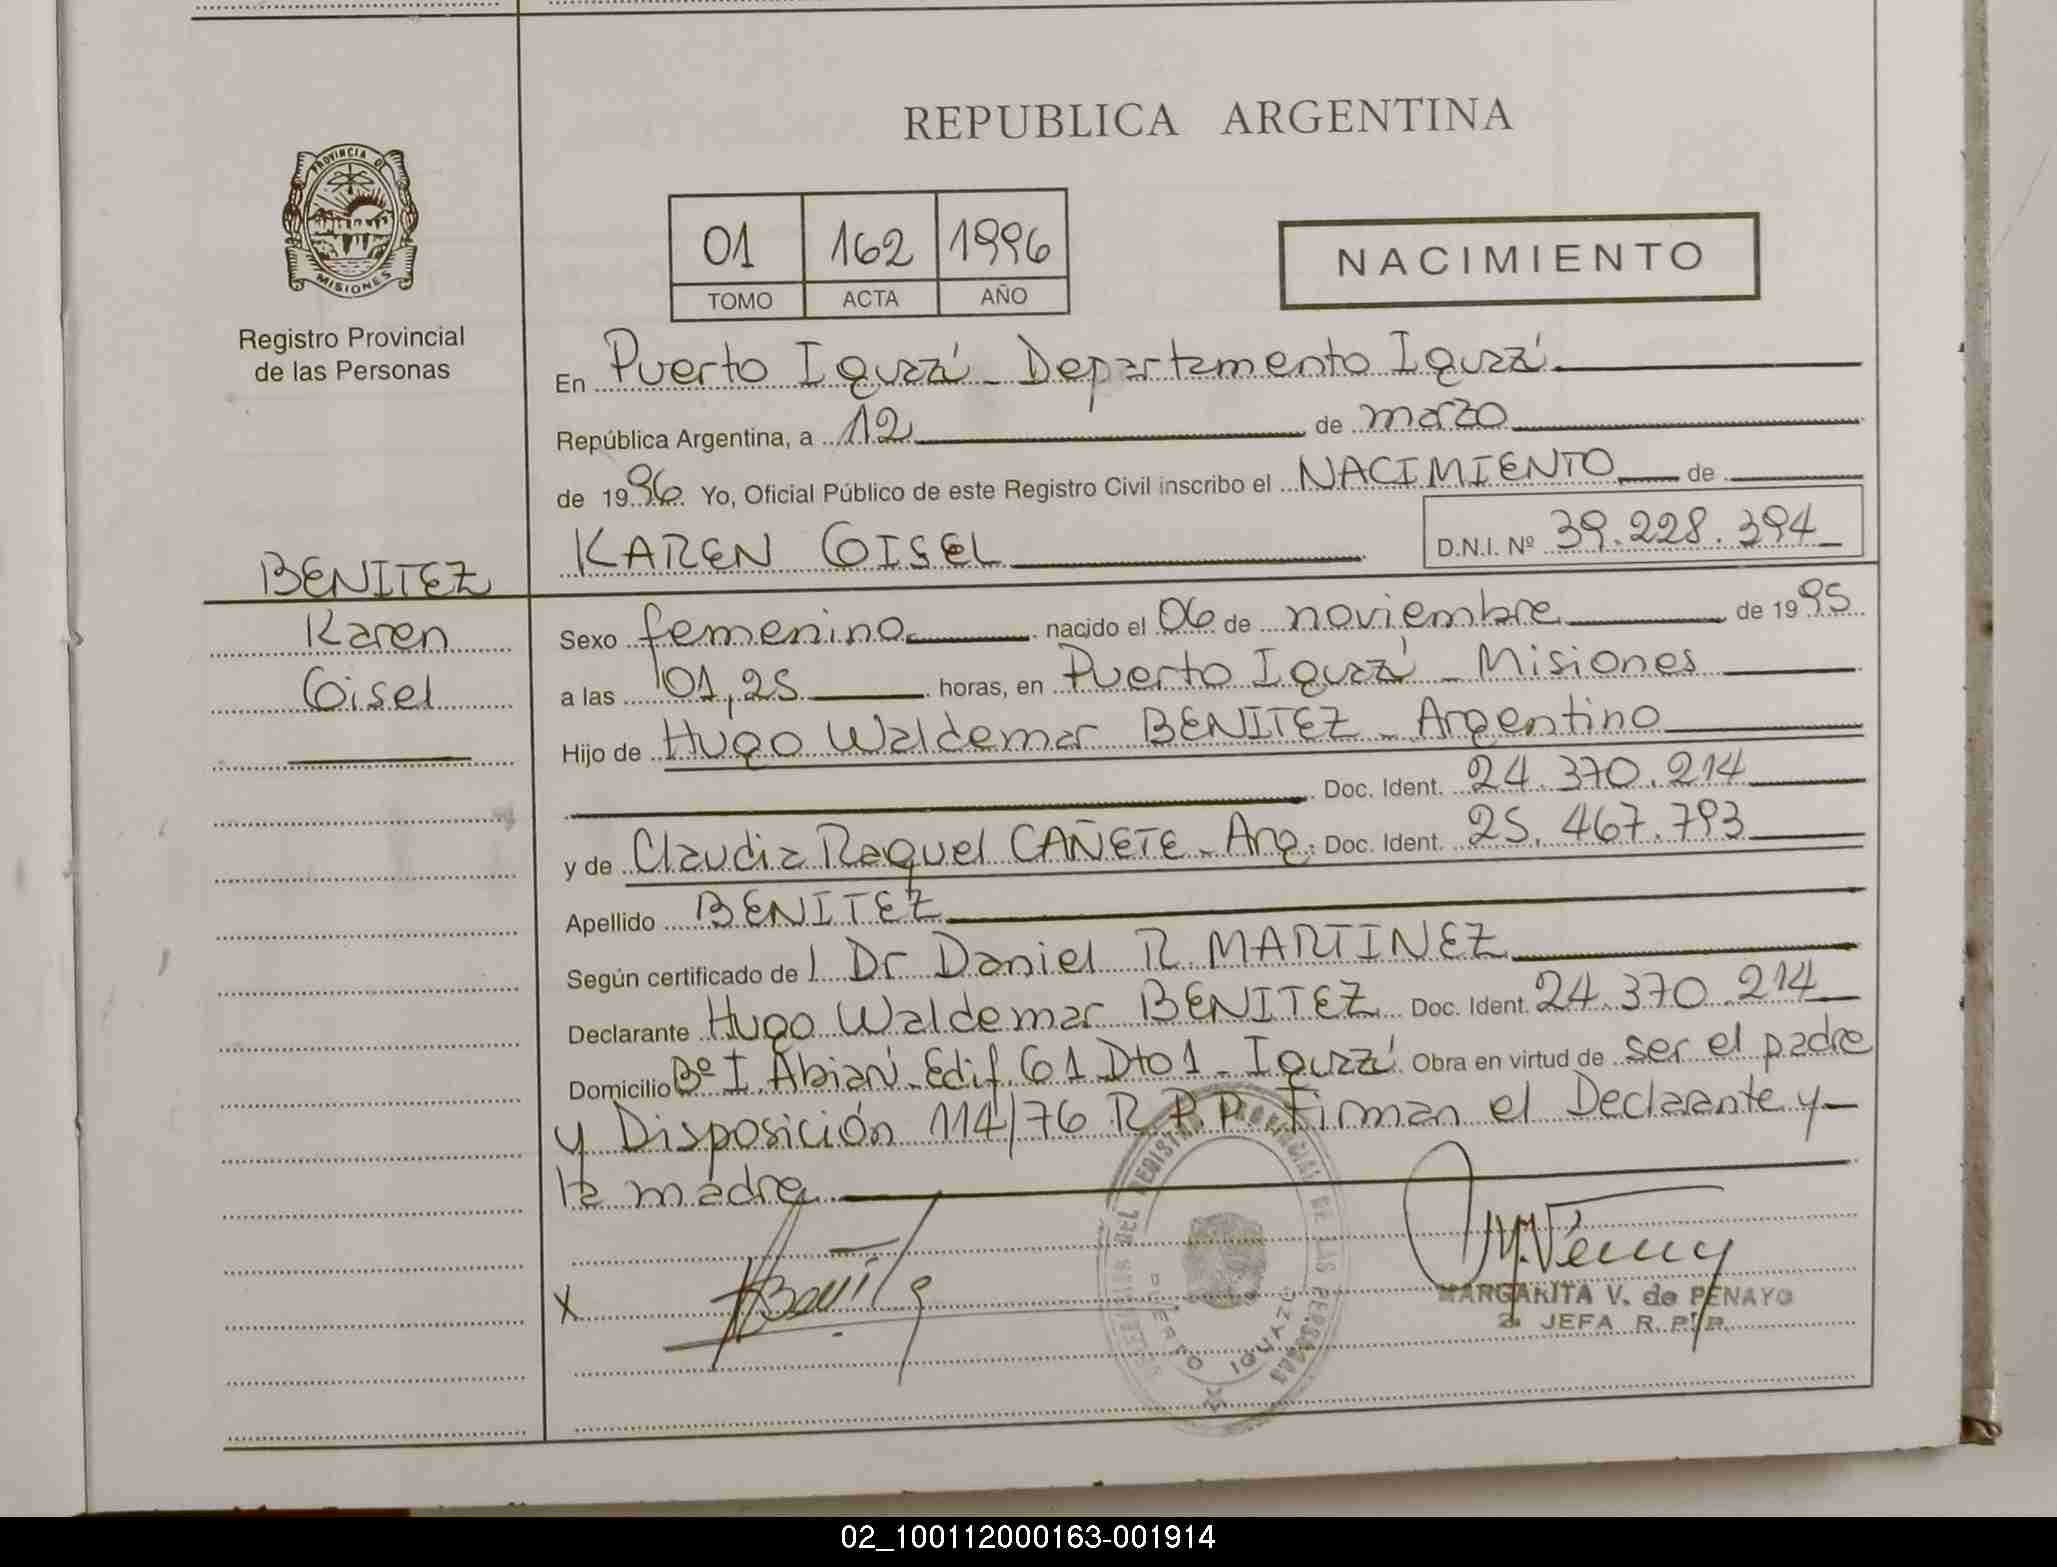 REPUBLICA ARGENTINA
PROVINCIA DE
MISIONES
Registro Provincial
de las Personas
01 162 1996
TOMO ACTA AÑO
NACIMIENTO
En Puerto Iguazú - Departamento Iguazú
República Argentina, a 12 de marzo
de 1996 Yo, Oficial Público de este Registro Civil inscribo el NACIMIENTO de
KAREN GISEL D.N.I. Nº 39.228.394
BENITEZ
Karen
Gisel
Sexo femenino nacido el 06 de noviembre de 1995
a las 01,25 horas, en Puerto Iguazú - Misiones
Hijo de Hugo Waldemar BENITEZ - Argentino
Doc. Ident. 24.370.214
y de Claudia Raquel CAÑETE - Arg. Doc. Ident. 25.467.793
Apellido BENITEZ
Según certificado de Dr Daniel R. MARTINEZ
Declarante Hugo Waldemar BENITEZ Doc. Ident. 24.370.214
Domicilio Bº I. Abian - Edif. 61 Dto 1 - Iguazú Obra en virtud de ser el padre
y Disposición 114/76 R.P.P. Firman el Declarante y
la madre
X
DEL REGISTRO PROVINCIAL DE LAS PERSONAS
PUERTO IGUAZU
MARGARITA V. de PENAYO
2ª JEFA R.P.P.
02_100112000163-001914